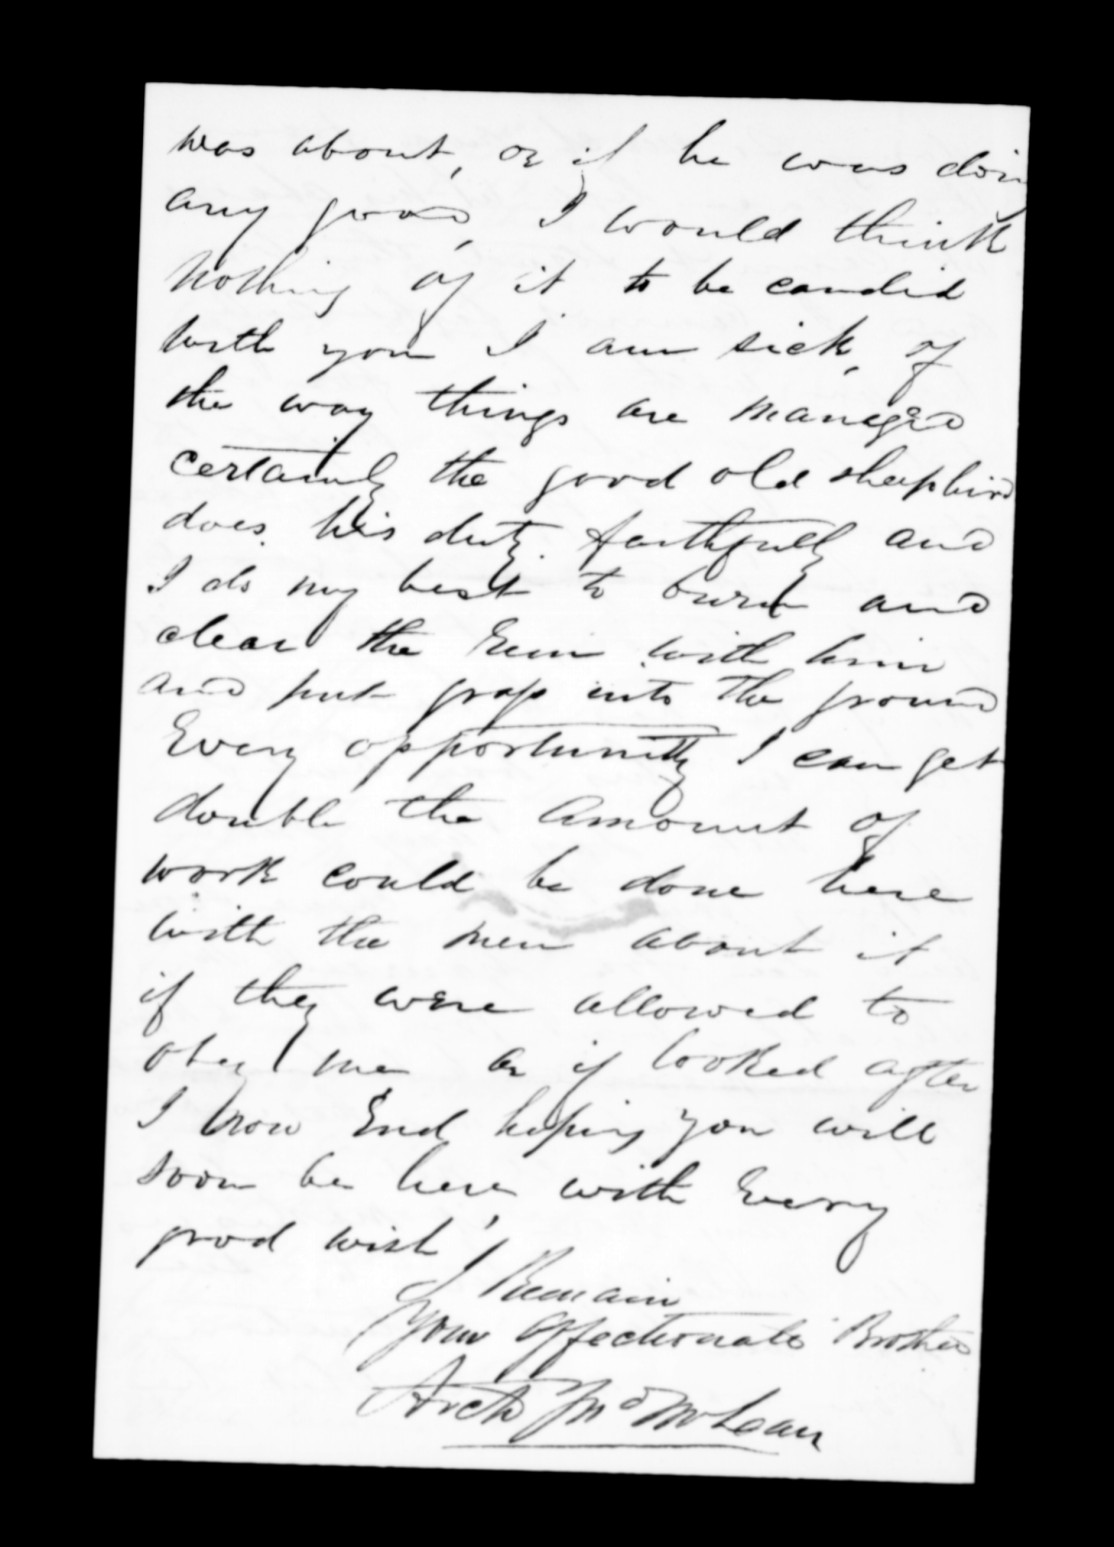 was about, or if he was doing
any good, I would think
nothing of it to be candid
with you I am sick, of
the way things are managed
certainly the good old shephird
does his duty. faithfully and
I do my best to burn and
clear the Run with him
and put grass into the ground
Every opportunity I can get
double the amount of
work could be done here
with the men about it
if they were allowed to
obey me or if looked after
I now End hoping you will
soon be here, with Every
good wish
I Remain
Your affectionate Brother
Arch McLean